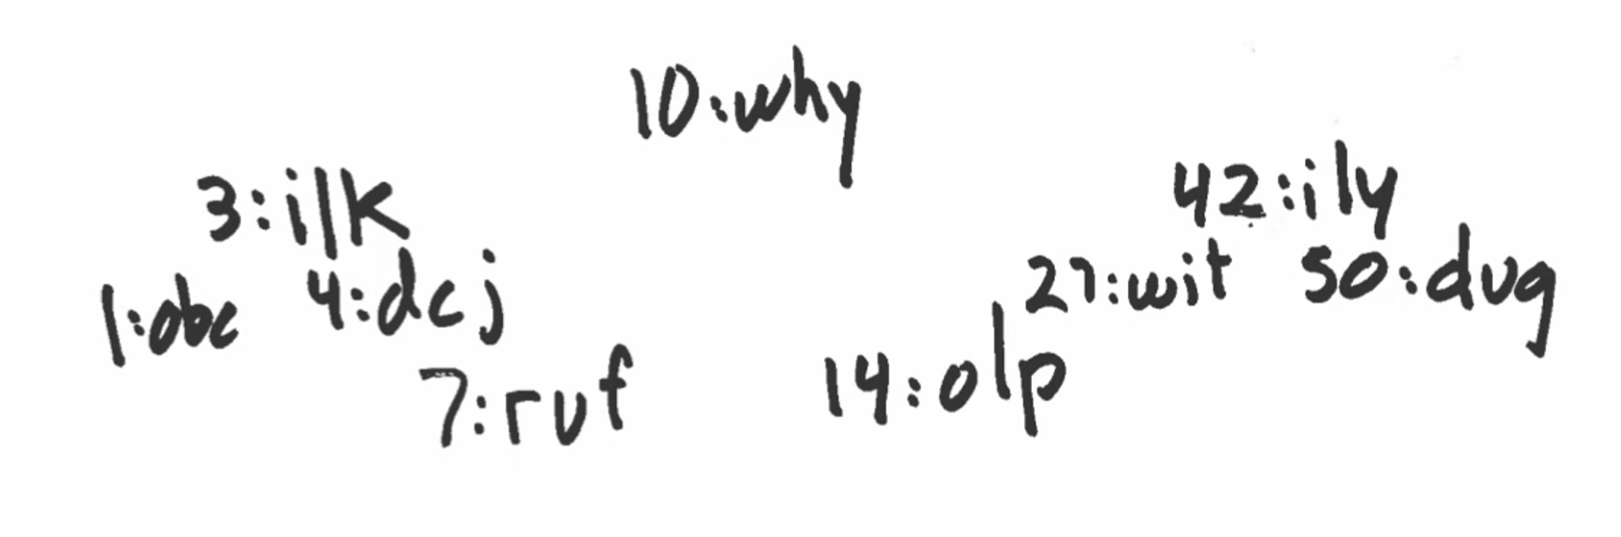 10:why
3:ilk
42:ily
1:obc 4:dcj
27:wit 50:dug
7:ruf
14:olp